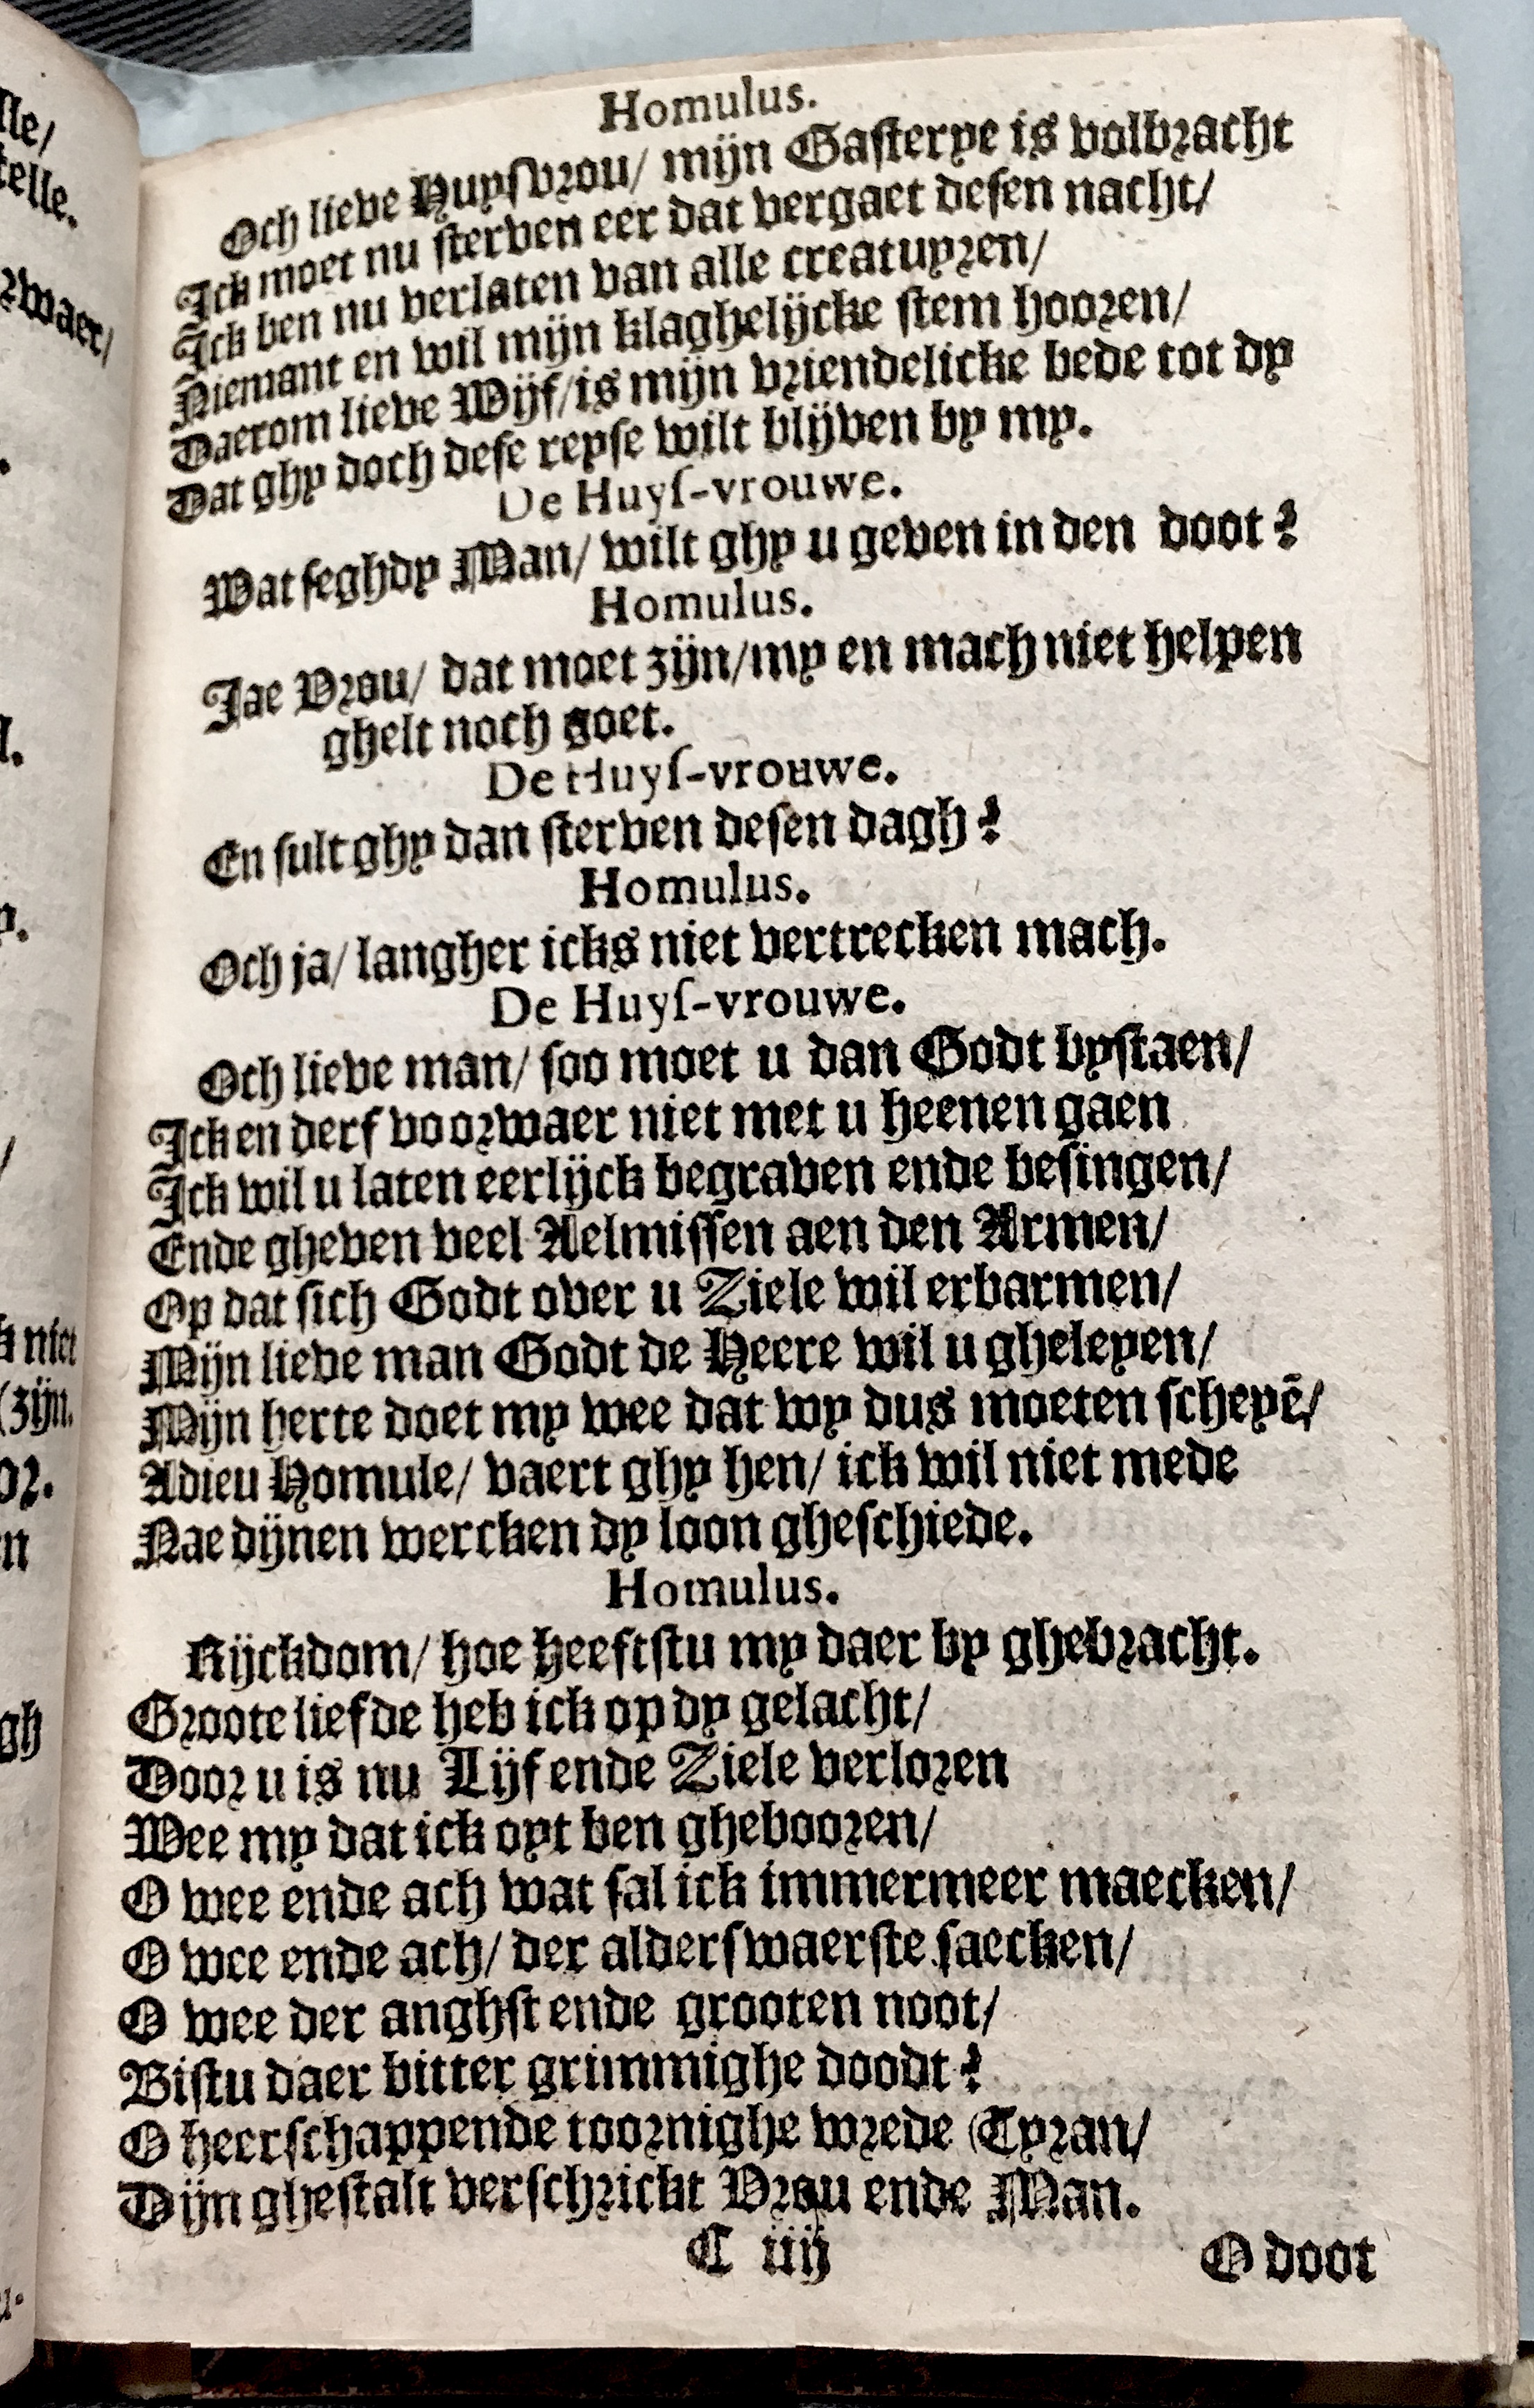 Homulus.
Och lieve Huysvrou/ mijn Gasterye is volbracht
Ick moet nu sterven eer dat vergaet desen nacht/
Ick ben nu verlaten van alle creatuyren/
Niemant en wil mijn klaghelijcke stem hooren/
Daerom lieve Wijf/is mijn vriendelicke bede tot dy
Dat ghy doch dese reyse wilt blijven by my.
De Huyſ-vrouwe.
Wat seghdy Man/ wilt ghy u geven in den doot?
Homulus.
Jae Vrou/ dat moet zijn/my en mach niet helpen
ghelt noch goet.
De Huyſ-vrouwe.
En sult ghy dan sterven desen dagh?
Homulus.
Och ja/ langher icks niet vertrecken mach.
De Huyſ-vrouwe.
Och lieve man/ soo moet u dan Godt bystaen/
Ick en derf voorwaer niet met u heenen gaen
Ick wil u laten eerlijck begraven ende besingen/
Ende gheven veel Aelmissen aen den Armen/
Op dat sich Godt over u Ziele wil erbarmen/
Mijn lieve man Godt de Heere wil u gheleyen/
Mijn herte doet my wee dat wy dus moeten scheyē/
Adieu Homule/ vaert ghy hen/ ick wil niet mede
Nae dijnen wercken dy loon gheschiede.
Homulus.
Rijckdom/ hoe heeftstu my daer by ghebracht.
Groote liefde heb ick op dy gelacht/
Door u is nu Lijf ende Ziele verloren
Wee my dat ick oyt ben ghebooren/
O wee ende ach wat sal ick immermeer maecken/
O wee ende ach/ der alderswaerste saecken/
O wee der anghst ende grooten noot/
Bistu daer bitter grimmighe doodt?
O heerschappende toornighe wrede (Tyran/
Dijn ghestalt verschrickt Vrou ende Man.
C iij
O doot